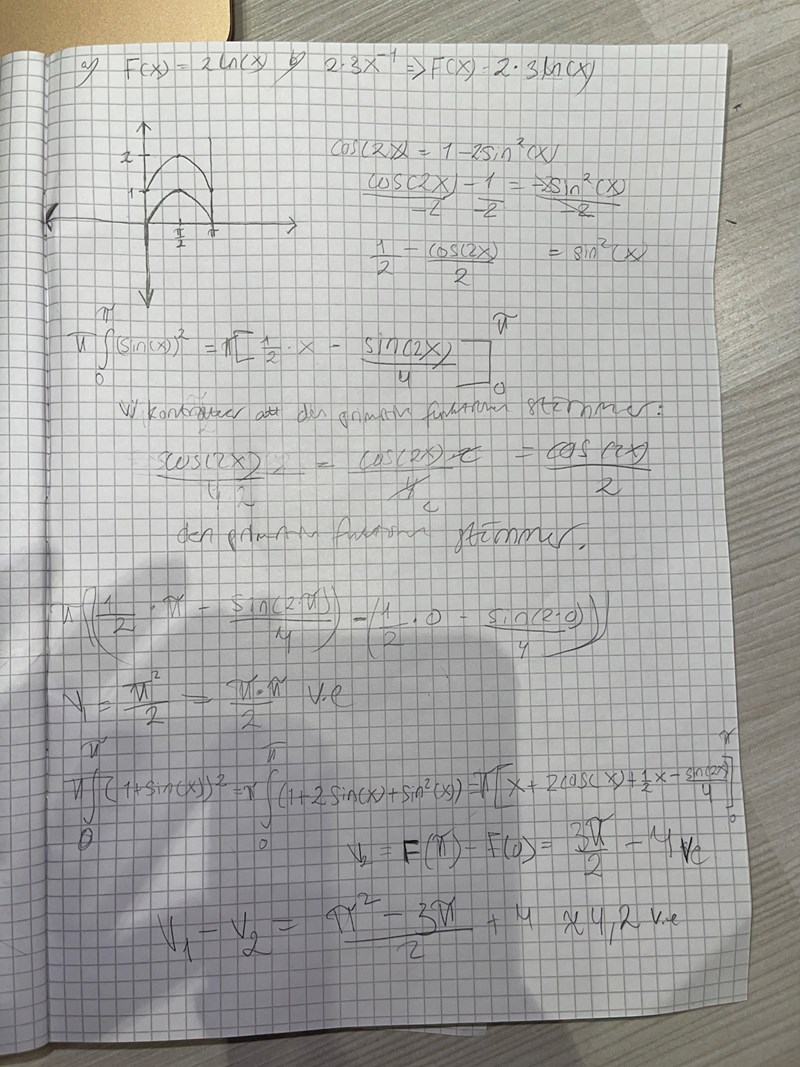 a) F(x) = 2 ln(x) b) 2·3x⁻¹ => F(x) = 2·3 ln(x)
2
1
π/2 π
cos(2x) = 1 - 2sin²(x)
(cos(2x))/-2 - 1/-2 = (-2sin²(x))/-2
1/2 - cos(2x)/2 = sin²(x)
π ∫₀^π (sin(x))² = π[1/2 · x - sin(2x)/4]₀^π
Vi kontrollerar att den primitiva funktionen stämmer:
= cos(2x)·2/4 = cos(2x)/2
den primitiva funktionen stämmer.
π((1/2 · π - sin(2·π)/4) - (1/2 · 0 - sin(2·0)/4))
V₁ = π²/2 = π·π/2 v.e
π ∫₀^π (1+sin(x))² = π ∫₀^π (1+2sin(x)+sin²(x)) = π[x + 2cos(x) + 1/2x - sin(2x)/4]₀^π
V₂ = F(π) - F(0) = 3π/2 - 4 ve
V₁ - V₂ = (π² - 3π)/2 + 4 ≈ 4,2 v.e